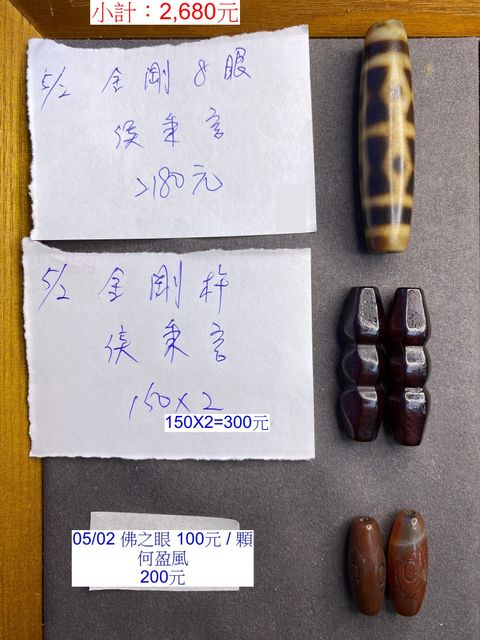 小計：2,680元
5/2 金剛8眼
侯秉言
2180元
5/2 金剛杵
侯秉言
150X2
150X2=300元
05/02 佛之眼 100元 / 顆
何盈風
200元